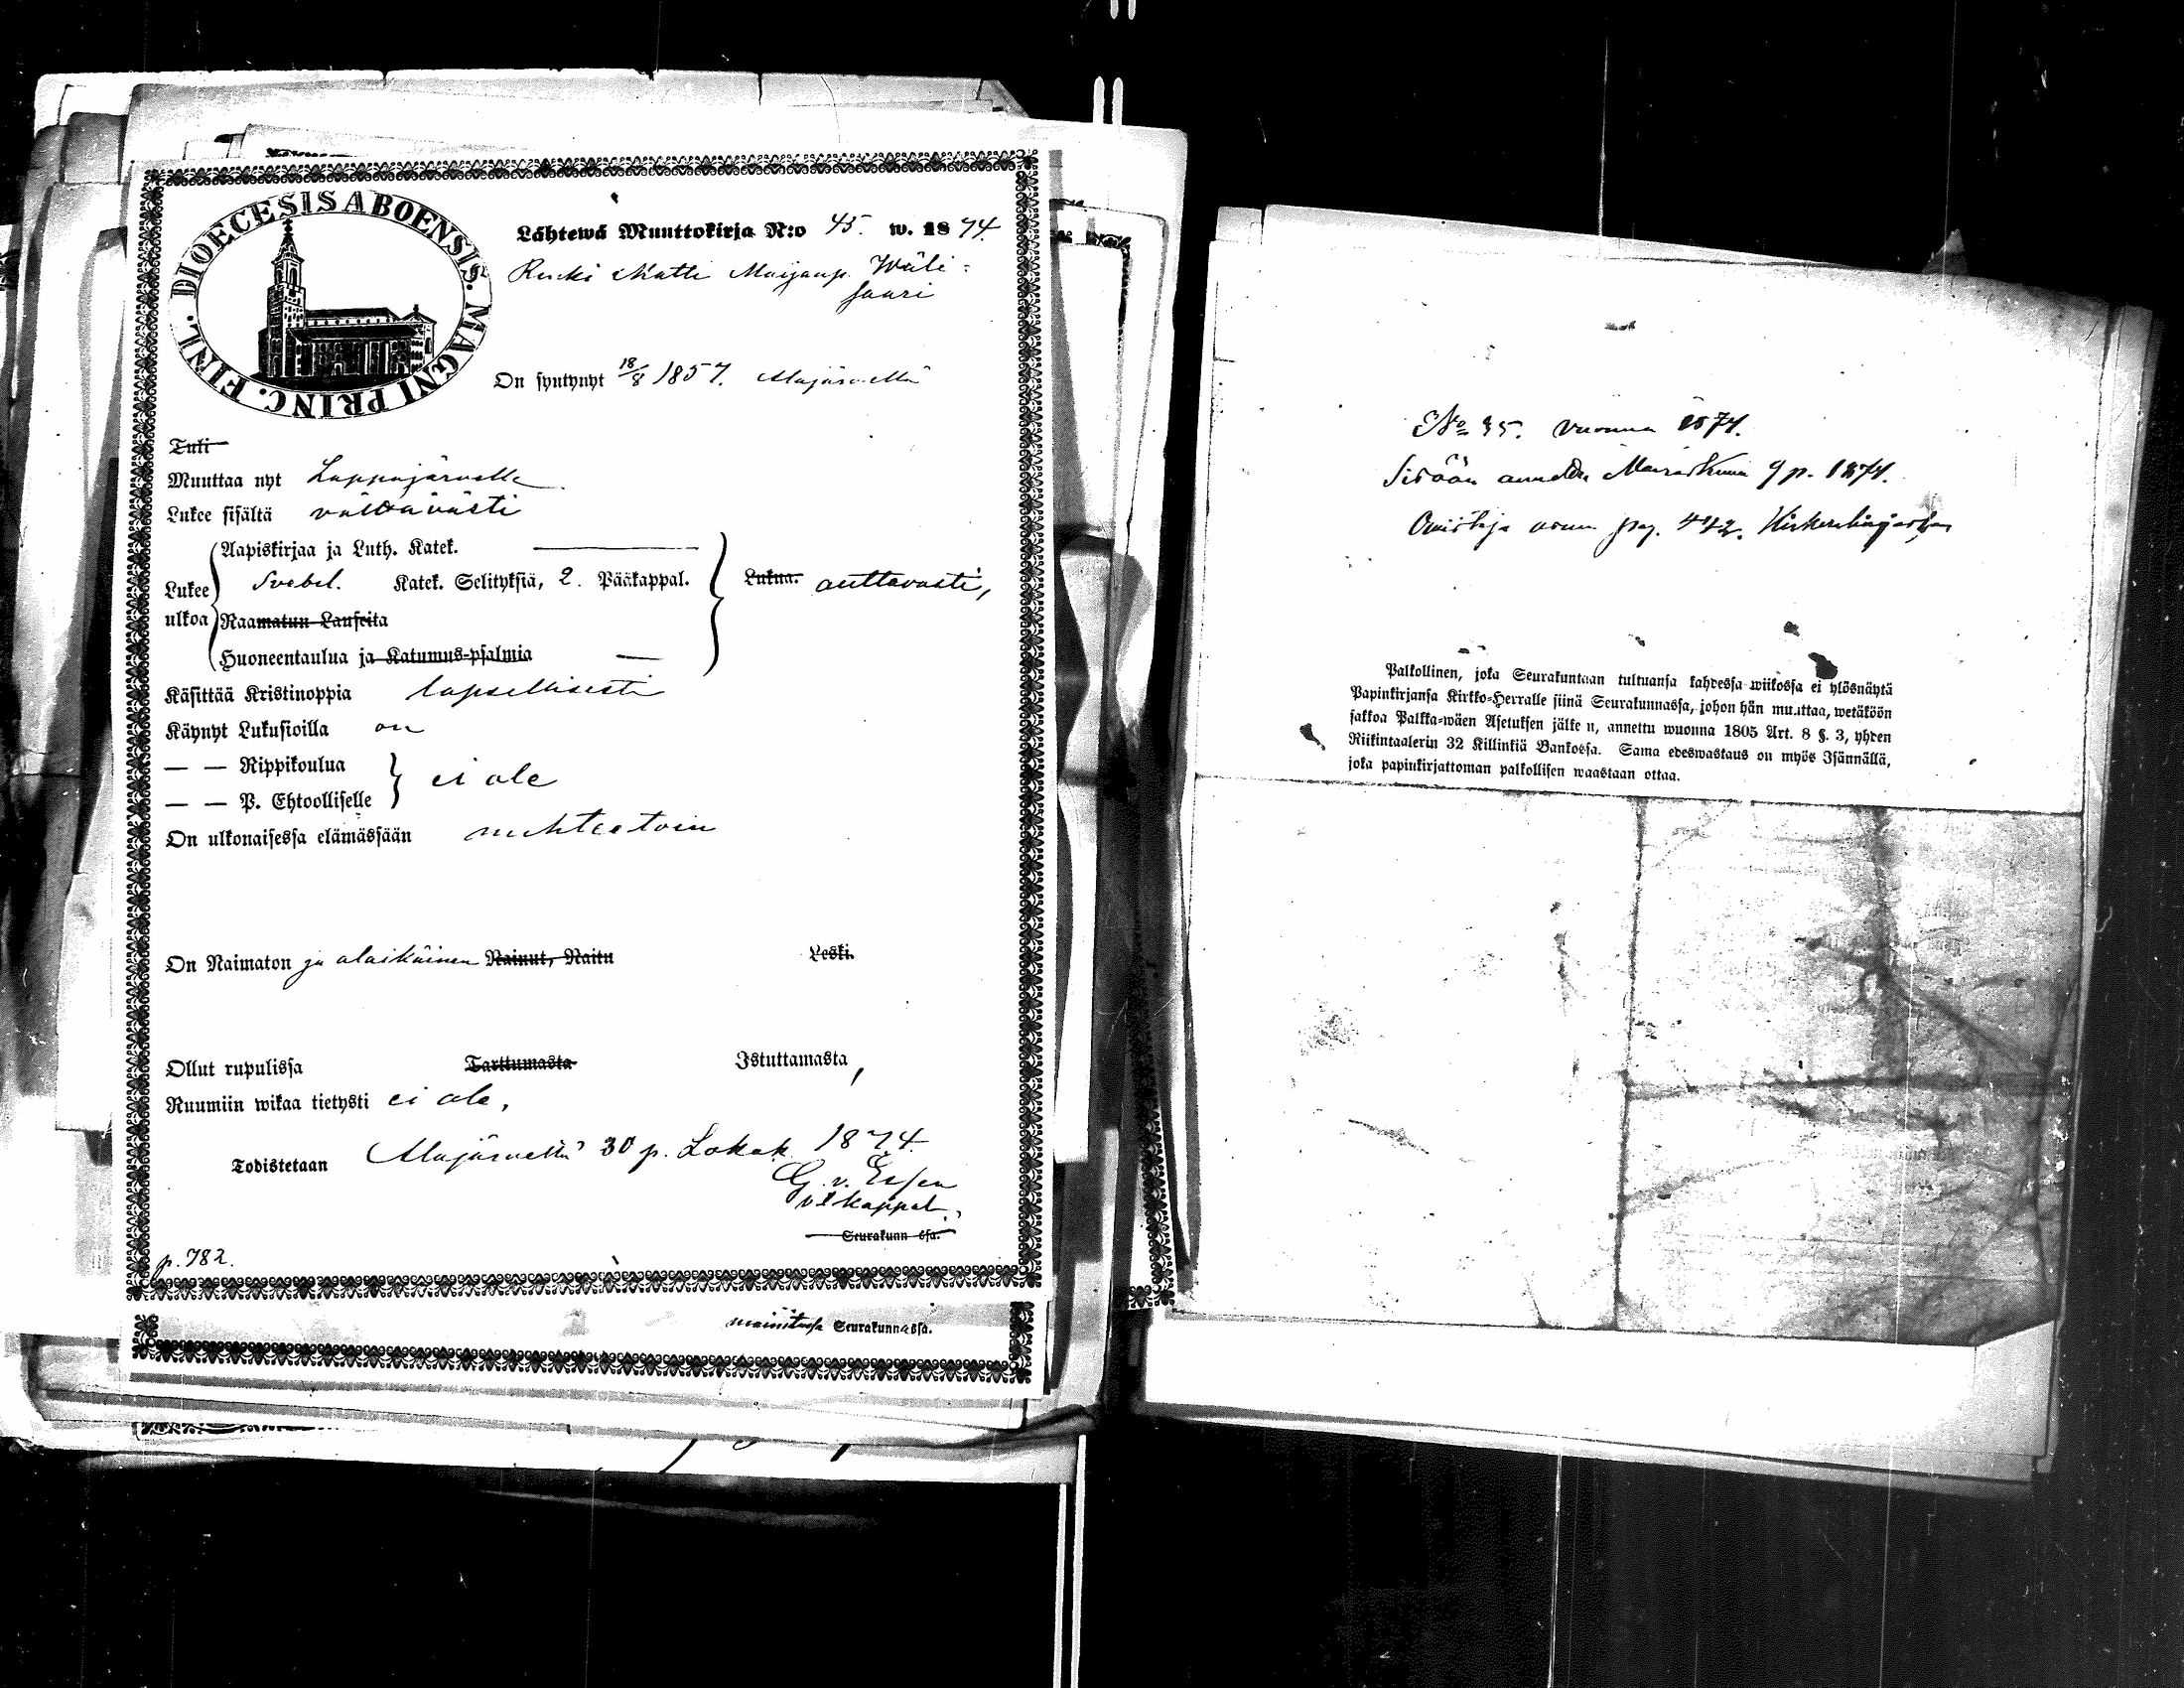 DIOECESIS ABOENSIS. MAGNI PRINC. FINL.
Lähtewä Muuttokirja N:o 45. w. 1874.
Renki Matti Maijanp. Wäli-
saari
On syntynyt 18/8 1857. Alajärvellä
Tuli
Muuttaa nyt Lappajärvelle
Lukee sisältä välttävästi
Aapiskirjaa ja Luth. Katek.
Lukee Svebel. Katek. Selityksiä, 2. Pääkappal. Lukua. auttavasti,
ulkoa Raamatun Lauseita
Huoneentaulua ja Katumus-psalmia
Käsittää Kristinoppia lapsellisesti
Käynyt Lukusioilla on
— — Rippikoulua
ei ole
— — P. Ehtoolliselle
On ulkonaisessa elämässään nuhteetoin
On Naimaton ja alaikäinen Nainut, Naitu Leski.
Ollut rupulissa Tarttumasta Istuttamasta,
Ruumiin wikaa tietysti ei ole,
Todistetaan Alajärvellä 30 p. Lokak. 1874.
G. v. Essen
v.t. kappal.
Seurakunn ssa.
p. 782.
mainitussa Seurakunnassa.
No 35. vuonna 1874.
Sisään annettu Marraskuun 9 p. 1874.
Omistaja asuu pag. 442. Kirkonkirjassa
Palkollinen, joka Seurakuntaan tultuansa kahdessa wiikossa ei ylösnäytä
Papinkirjansa Kirkko-Herralle siinä Seurakunnassa, johon hän muuttaa, wetäköön
sakkoa Palkka-wäen Asetuksen jälke n, annettu wuonna 1805 Art. 8 §. 3, yhden
Riikintaalerin 32 Killinkiä Bankossa. Sama edeswastaus on myös Isännällä,
joka papinkirjattoman palkollisen waastaan ottaa.